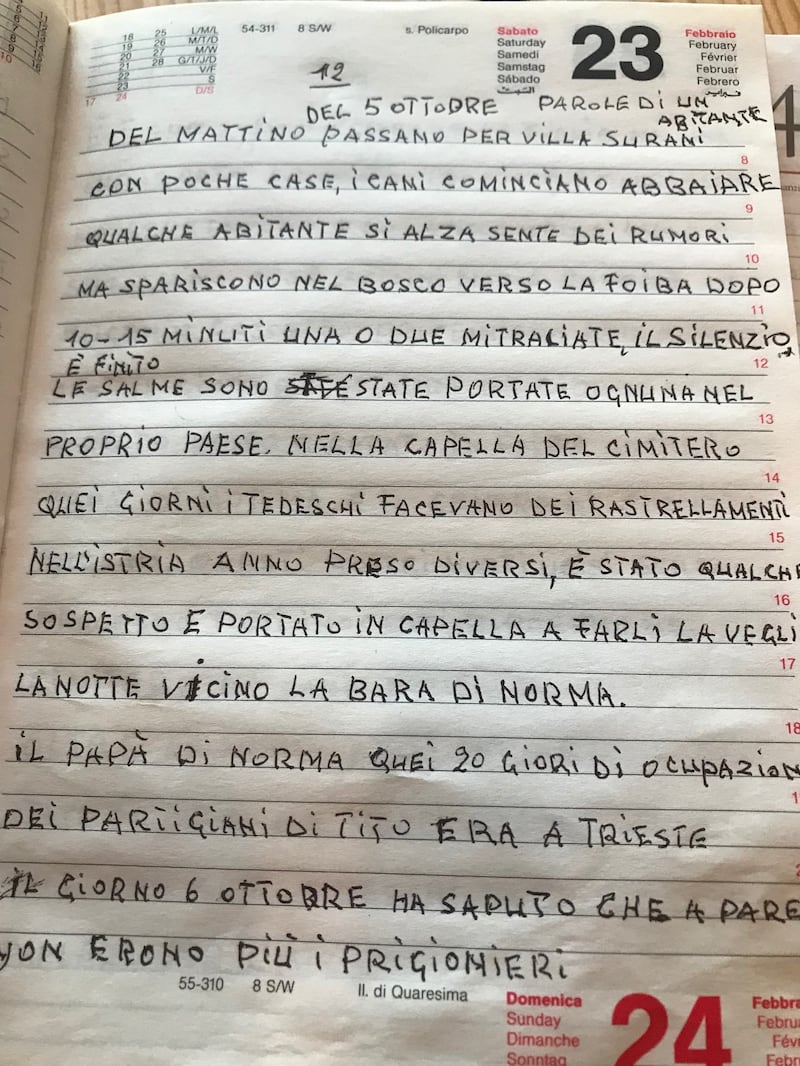 18 25 L/M/L 54-311 8 S/W s. Policarpo Sabato 23 Febbraio
19 26 M/T/D Saturday February
20 27 M/W Samedi Février
21 28 G/T/J/D Samstag Februar
22 V/F Sábado Febrero
23 S
17 24 D/S
12
DEL 5 OTTOBRE PAROLE DI UN
ABITANTE
DEL MATTINO PASSANO PER VILLA SURANI
8
CON POCHE CASE, I CANI COMINCIANO ABBAIARE
9
QUALCHE ABITANTE SI ALZA SENTE DEI RUMORI
10
MA SPARISCONO NEL BOSCO VERSO LA FOIBA DOPO
11
10-15 MINUTI UNA O DUE MITRALIATE, IL SILENZIO
È FINITO
12
LE SALME SONO STATE PORTATE OGNUNA NEL
13
PROPRIO PAESE. NELLA CAPELLA DEL CIMITERO
14
QUEI GIORNI I TEDESCHI FACEVANO DEI RASTRELLAMENTI
15
NELL'ISTRIA ANNO PRESO DIVERSI, È STATO QUALCHE
16
SOSPETTO E PORTATO IN CAPELLA A FARLI LA VEGLI
17
LA NOTTE VICINO LA BARA DI NORMA.
18
IL PAPÀ DI NORMA QUEI 20 GIORI DI OCUPAZION
1
DEI PARTIGIANI DI TITO ERA A TRIESTE
2
IL GIORNO 6 OTTOBRE HA SAPUTO CHE A PARE
NON ERONO PIÙ I PRIGIONIERI
55-310 8 S/W II. di Quaresima Domenica 24 Febbra
Sunday Februa
Dimanche Févri
Sonntag Februa